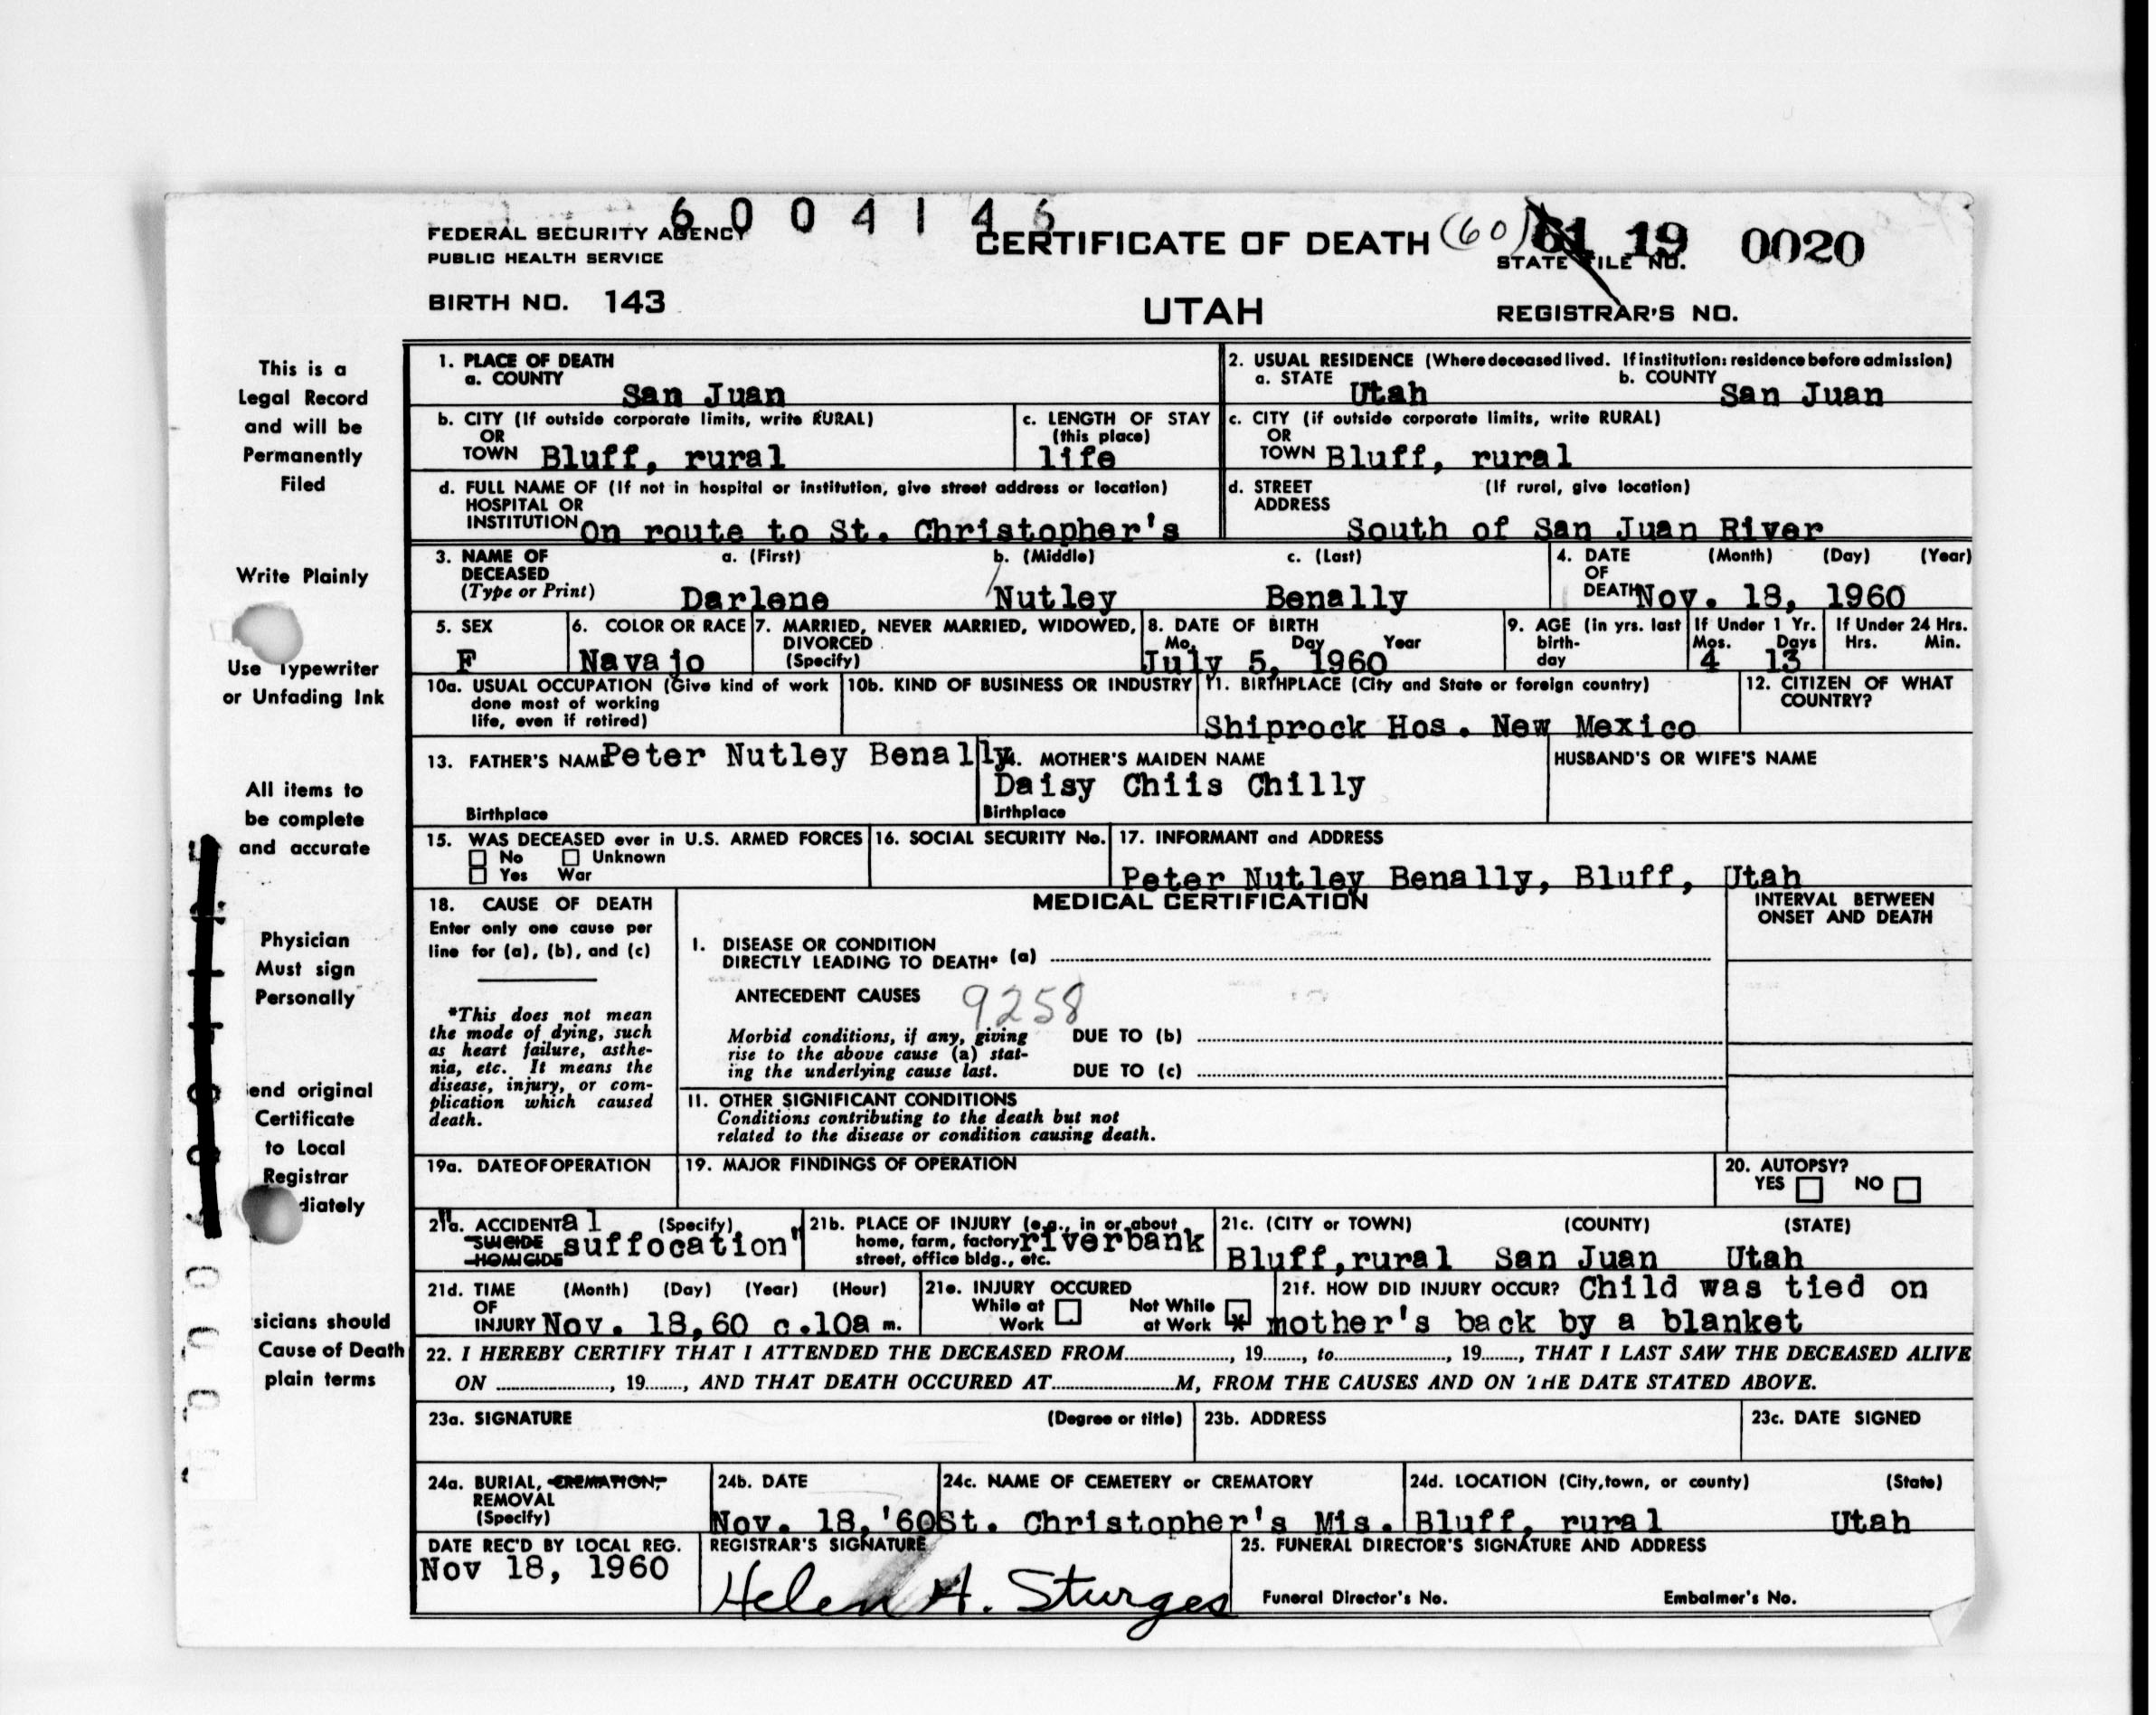 6004146
FEDERAL SECURITY AGENCY
PUBLIC HEALTH SERVICE
CERTIFICATE OF DEATH (60) 61 19 0020
STATE FILE NO.
BIRTH NO. 143
UTAH
REGISTRAR'S NO.
This is a
Legal Record
and will be
Permanently
Filed
Write Plainly
Use Typewriter
or Unfading Ink
All items to
be complete
and accurate
Physician
Must sign
Personally
end original
Certificate
to Local
Registrar
diately
sicians should
Cause of Death
plain terms
1. PLACE OF DEATH
a. COUNTY San Juan
2. USUAL RESIDENCE (Where deceased lived. If institution: residence before admission)
a. STATE Utah b. COUNTY San Juan
b. CITY (If outside corporate limits, write RURAL)
OR
TOWN Bluff, rural
c. LENGTH OF STAY
(this place)
life
c. CITY (if outside corporate limits, write RURAL)
OR
TOWN Bluff, rural
d. FULL NAME OF (If not in hospital or institution, give street address or location)
HOSPITAL OR
INSTITUTION On route to St. Christopher's
d. STREET (If rural, give location)
ADDRESS
South of San Juan River
3. NAME OF a. (First) b. (Middle) c. (Last)
DECEASED
(Type or Print) Darlene Nutley Benally
4. DATE (Month) (Day) (Year)
OF
DEATH Nov. 18, 1960
5. SEX
F
6. COLOR OR RACE
Navajo
7. MARRIED, NEVER MARRIED, WIDOWED,
DIVORCED
(Specify)
8. DATE OF BIRTH
Mo. Day Year
July 5, 1960
9. AGE (in yrs. last
birth-
day
If Under 1 Yr.
Mos. Days
4 13
If Under 24 Hrs.
Hrs. Min.
10a. USUAL OCCUPATION (Give kind of work
done most of working
life, even if retired)
10b. KIND OF BUSINESS OR INDUSTRY
11. BIRTHPLACE (City and State or foreign country)
Shiprock Hos. New Mexico
12. CITIZEN OF WHAT
COUNTRY?
13. FATHER'S NAME Peter Nutley Benally
Birthplace
14. MOTHER'S MAIDEN NAME
Daisy Chiis Chilly
Birthplace
HUSBAND'S OR WIFE'S NAME
15. WAS DECEASED ever in U.S. ARMED FORCES
No Unknown
Yes War
16. SOCIAL SECURITY No.
17. INFORMANT and ADDRESS
Peter Nutley Benally, Bluff, Utah
18. CAUSE OF DEATH
Enter only one cause per
line for (a), (b), and (c)
*This does not mean
the mode of dying, such
as heart failure, asthe-
nia, etc. It means the
disease, injury, or com-
plication which caused
death.
MEDICAL CERTIFICATION
INTERVAL BETWEEN
ONSET AND DEATH
I. DISEASE OR CONDITION
DIRECTLY LEADING TO DEATH* (a)
ANTECEDENT CAUSES 9258
Morbid conditions, if any, giving DUE TO (b)
rise to the above cause (a) stat-
ing the underlying cause last. DUE TO (c)
11. OTHER SIGNIFICANT CONDITIONS
Conditions contributing to the death but not
related to the disease or condition causing death.
19a. DATE OF OPERATION
19. MAJOR FINDINGS OF OPERATION
20. AUTOPSY?
YES NO
21a. "ACCIDENTal (Specify)
SUICIDE suffocation"
HOMICIDE
21b. PLACE OF INJURY (e.g., in or about
home, farm, factory riverbank
street, office bldg., etc.
21c. (CITY or TOWN) (COUNTY) (STATE)
Bluff,rural San Juan Utah
21d. TIME (Month) (Day) (Year) (Hour)
OF
INJURY Nov. 18,60 c.10a m.
21e. INJURY OCCURED
While at Work Not While at Work *
21f. HOW DID INJURY OCCUR? Child was tied on
mother's back by a blanket
22. I HEREBY CERTIFY THAT I ATTENDED THE DECEASED FROM........, 19...., to........, 19...., THAT I LAST SAW THE DECEASED ALIVE
ON ........, 19...., AND THAT DEATH OCCURED AT........M, FROM THE CAUSES AND ON THE DATE STATED ABOVE.
23a. SIGNATURE (Degree or title)
23b. ADDRESS
23c. DATE SIGNED
24a. BURIAL, CREMATION,
REMOVAL
(Specify)
24b. DATE
Nov. 18,'60
24c. NAME OF CEMETERY or CREMATORY
St. Christopher's Mis.
24d. LOCATION (City,town, or county) (State)
Bluff, rural Utah
DATE REC'D BY LOCAL REG.
Nov 18, 1960
REGISTRAR'S SIGNATURE
Helen H. Sturges
25. FUNERAL DIRECTOR'S SIGNATURE AND ADDRESS
Funeral Director's No. Embalmer's No.